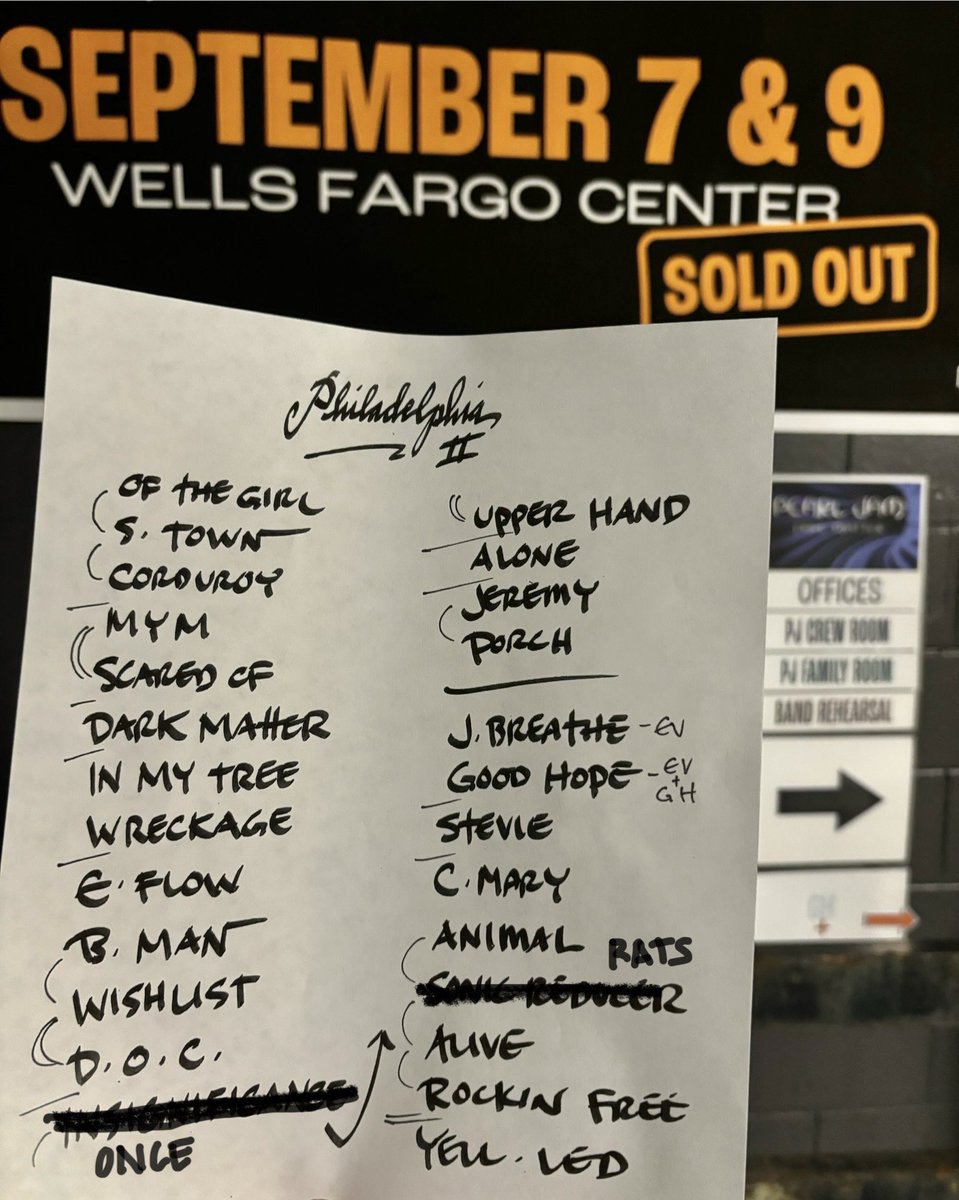 SEPTEMBER 7 & 9
WELLS FARGO CENTER
SOLD OUT
Philadelphia
II
OF THE GIRL
S. TOWN
CORDUROY
MYM
SCARED OF
DARK MATTER
IN MY TREE
WRECKAGE
E. FLOW
B. MAN
WISHLIST
D.O.C.
INSIGNIFICANCE
ONCE
UPPER HAND
ALONE
JEREMY
PORCH
J. BREATHE - EV
GOOD HOPE - EV + GH
STEVIE
C. MARY
ANIMAL
RATS
SONIC REDUCER
ALIVE
ROCKIN FREE
YELL. LED
PEARL JAM
OFFICES
PJ CREW ROOM
PJ FAMILY ROOM
BAND REHEARSAL